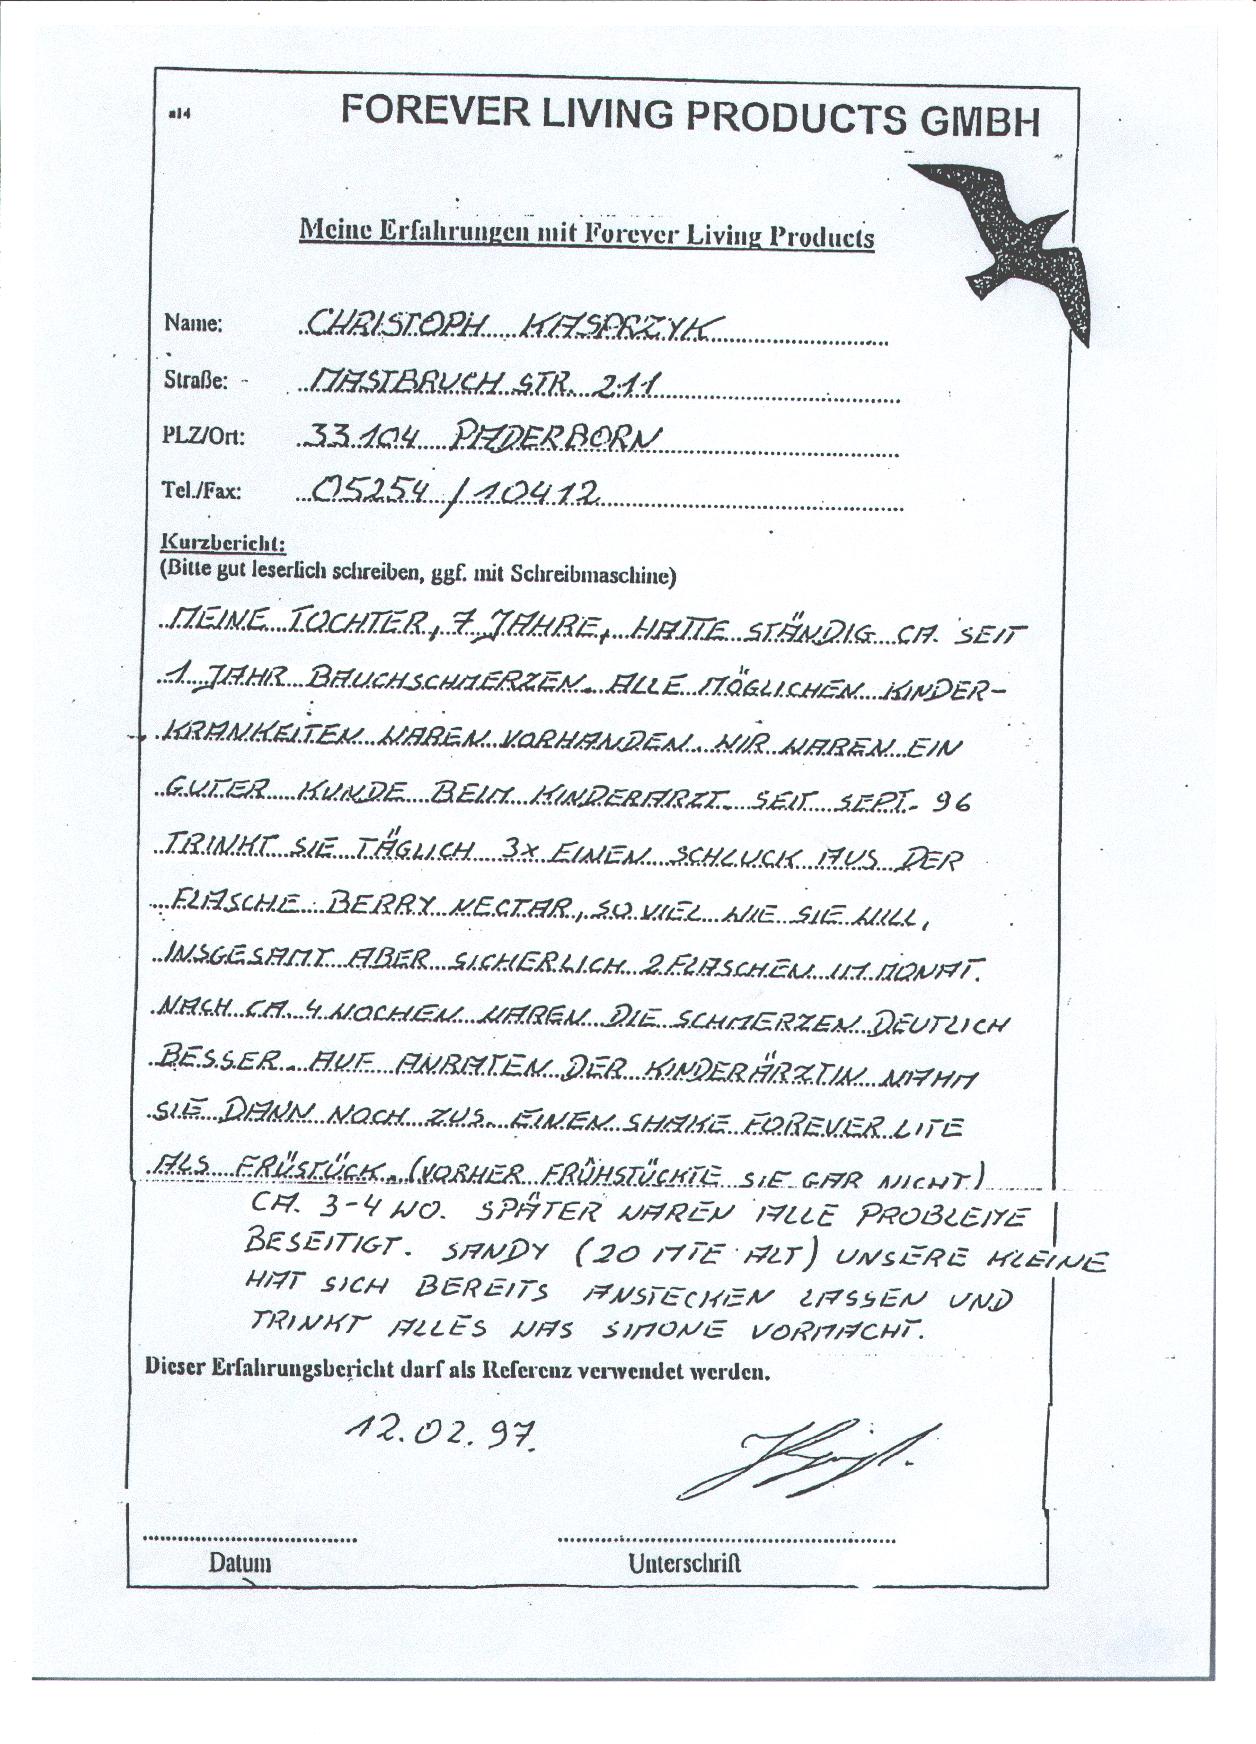 a14
FOREVER LIVING PRODUCTS GMBH
Meine Erfahrungen mit Forever Living Products
Name: CHRISTOPH KASPRZYK
Straße: - MASTBRUCH STR. 211
PLZ/Ort: 33104 PADERBORN
Tel./Fax: 05254/10412
Kurzbericht:
(Bitte gut leserlich schreiben, ggf. mit Schreibmaschine)
MEINE TOCHTER, 7 JAHRE, HATTE STÄNDIG CA. SEIT
1 JAHR BAUCHSCHMERZEN. ALLE MÖGLICHEN KINDER-
KRANKEITEN WAREN VORHANDEN. WIR WAREN EIN
GUTER KUNDE BEIM KINDERARZT. SEIT SEPT. 96
TRINKT SIE TÄGLICH 3x EINEN SCHLUCK AUS DER
FLASCHE BERRY NECTAR, SO VIEL WIE SIE WILL,
INSGESAMT ABER SICHERLICH 2 FLASCHEN IM MONAT.
NACH CA. 4 WOCHEN WAREN DIE SCHMERZEN DEUTLICH
BESSER. AUF ANRATEN DER KINDERÄRZTIN NAHM
SIE DANN NOCH ZUS. EINEN SHAKE FOREVER LITE
ALS FRÜSTÜCK. (VORHER FRÜHSTÜCKTE SIE GAR NICHT)
CA. 3-4 WO. SPÄTER WAREN ALLE PROBLEME
BESEITIGT. SANDY (20 MTE ALT) UNSERE KLEINE
HAT SICH BEREITS ANSTECKEN LASSEN UND
TRINKT ALLES WAS SIMONE VORMACHT.
Dieser Erfahrungsbericht darf als Referenz verwendet werden.
12.02.97.
Datum Unterschrift